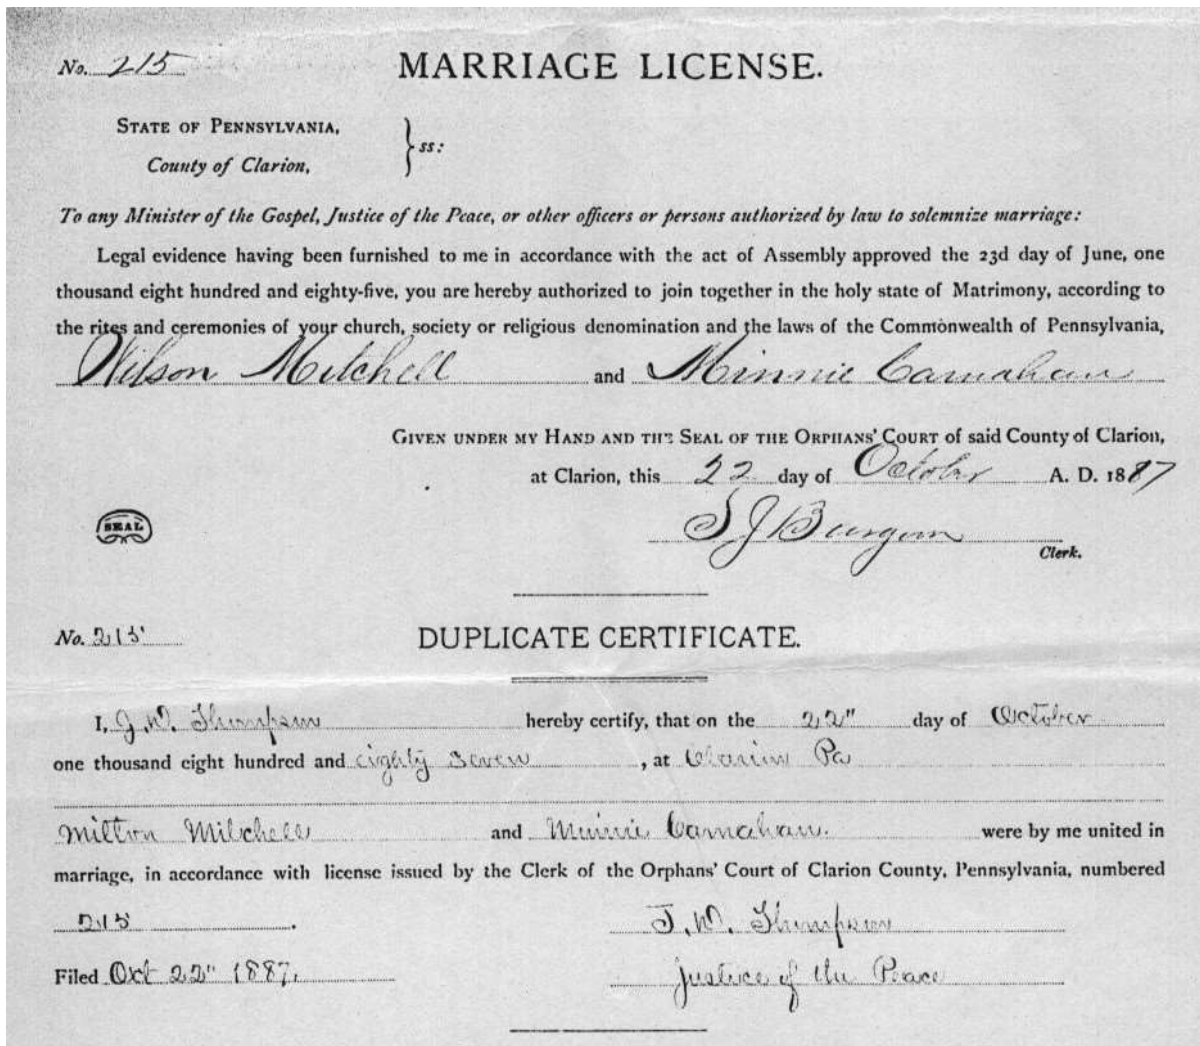 No. 215 MARRIAGE LICENSE.
STATE OF PENNSYLVANIA,
County of Clarion, } ss:
To any Minister of the Gospel, Justice of the Peace, or other officers or persons authorized by law to solemnize marriage:
Legal evidence having been furnished to me in accordance with the act of Assembly approved the 23d day of June, one
thousand eight hundred and eighty-five, you are hereby authorized to join together in the holy state of Matrimony, according to
the rites and ceremonies of your church, society or religious denomination and the laws of the Commonwealth of Pennsylvania,
Wilson Mitchell and Minnie Carnahan
GIVEN UNDER MY HAND AND THE SEAL OF THE ORPHANS' COURT of said County of Clarion,
at Clarion, this 22 day of October A. D. 1887
SEAL
S J Burgoon
Clerk.
No. 215 DUPLICATE CERTIFICATE.
I, J. W. Thompson hereby certify, that on the 22" day of October
one thousand eight hundred and eighty seven, at Clarion Pa
Milton Mitchell and Minnie Carnahan. were by me united in
marriage, in accordance with license issued by the Clerk of the Orphans' Court of Clarion County, Pennsylvania, numbered
215. J. W. Thompson
Filed Oct 22" 1887. Justice of the Peace